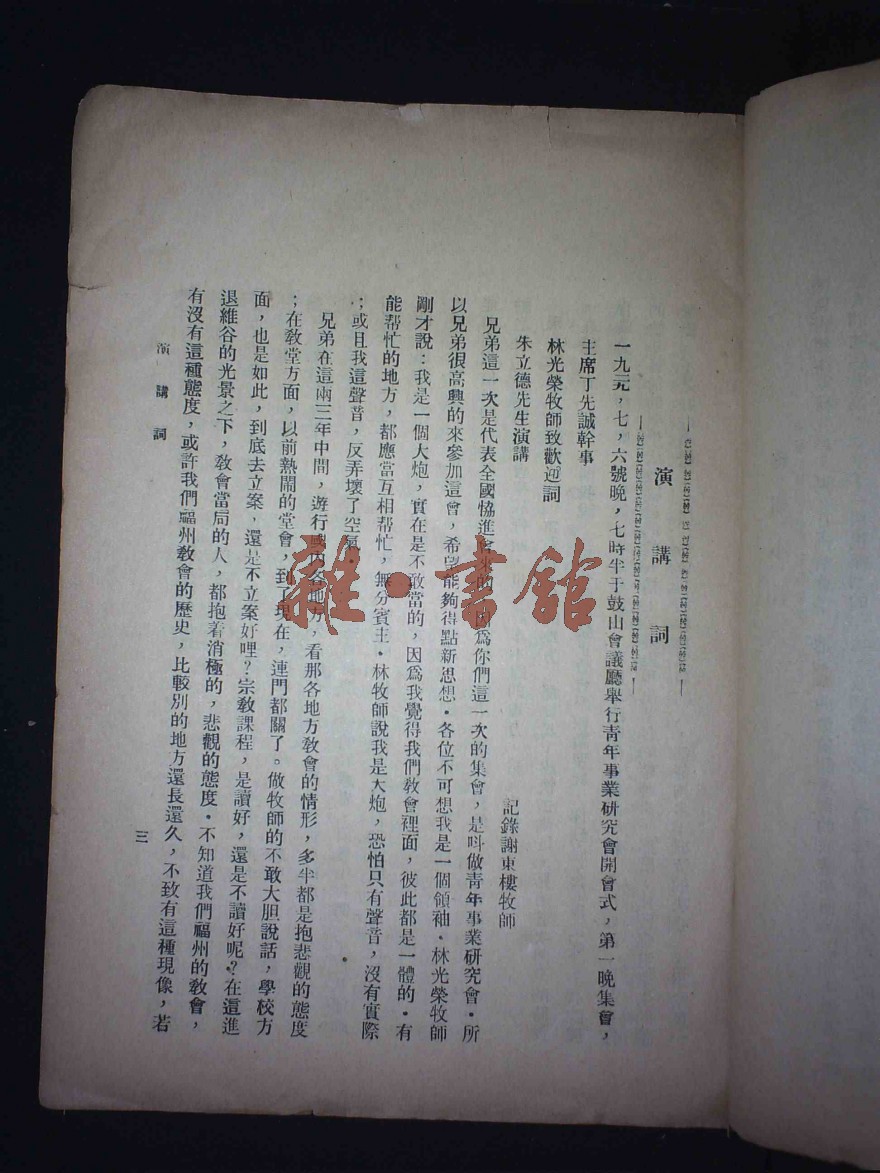 演講詞
一九二九，七，六號晚，七時半于鼓山會議廳舉行青年事業研究會開會式，第一晚集會，
主席丁先誠幹事
林光榮牧師致歡迎詞
朱立德先生演講
記錄謝東樓牧師
兄弟這一次是代表全國恊進會來的，因爲你們這一次的集會，是呌做青年事業研究會・所
以兄弟很高興的來參加這會，希望能夠得點新思想・各位不可想我是一個領袖・林光榮牧師
剛才說：我是一個大炮，實在是不敢當的，因爲我覺得我們敎會裡面，彼此都是一體的・有
能帮忙的地方，都應當互相帮忙，無分賓主・林牧師說我是大炮，恐怕只有聲音，沒有實際
；或且我這聲音，反弄壞了空氣・
兄弟在這兩三年中間，遊行國內各地方，看那各地方敎會的情形，多半都是抱悲觀的態度
；在敎堂方面，以前熱鬧的堂會，到了現在，連門都關了。做牧師的不敢大胆說話，學校方
面，也是如此，到底去立案，還是不立案好哩？宗敎課程，是讀好，還是不讀好呢？在這進
退維谷的光景之下，敎會當局的人，都抱着消極的，悲觀的態度・不知道我們福州的敎會，
有沒有這種態度，或許我們福州敎會的歷史，比較別的地方還長還久，不致有這種現像，若
演講詞
三
雜・書館